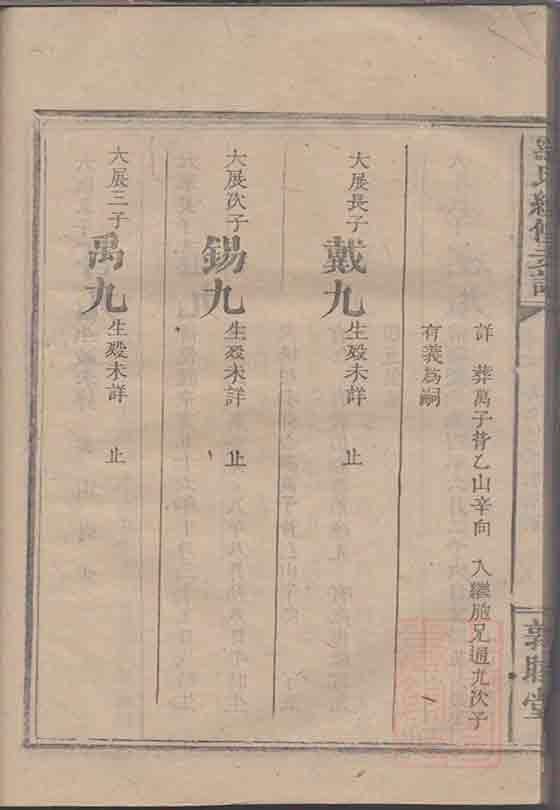 氏續修宗譜
敦睦堂
詳 葬萬子背乙山辛向 入繼胞兄通九次子
有義為嗣
大展長子 戴九 生歿未詳 止
大展次子 錫九 生歿未詳 止
大展三子 禹九 生歿未詳 止